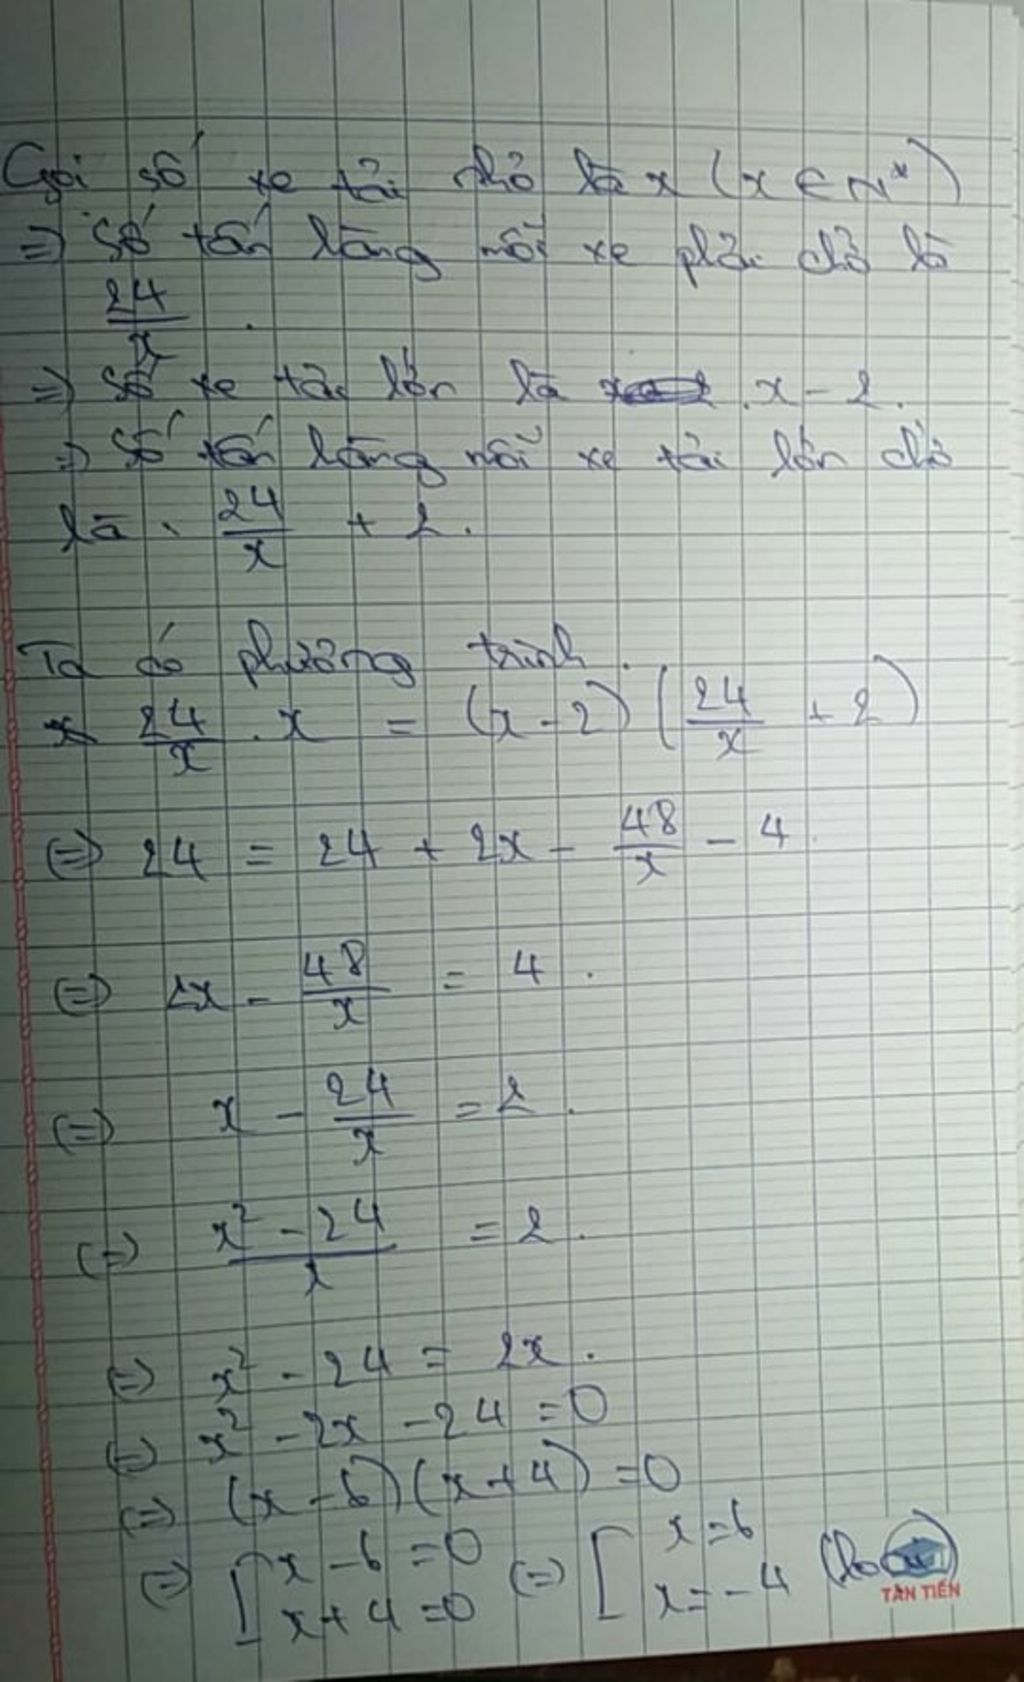 Gọi số xe tải nhỏ là x (x ∈ N*)
=> Số tấn hàng mỗi xe phải chở là
24/x .
=> Số xe tải lớn là x - 2.
=> Số tấn hàng mỗi xe tải lớn chở
là : 24/x + 2.
Ta có phương trình.
24/x . x = (x - 2) (24/x + 2)
(=) 24 = 24 + 2x - 48/x - 4.
(=) 2x - 48/x = 4 .
(=) x - 24/x = 2 .
(=) (x² - 24)/x = 2 .
(=) x² - 24 = 2x .
(=) x² - 2x - 24 = 0
(=) (x - 6) (x + 4) = 0
(=) [ x - 6 = 0 (=) [ x = 6
x + 4 = 0 x = -4 (loại)
TÂN TIẾN